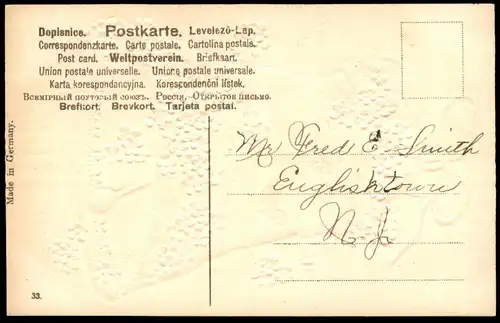 Dopisnice. Postkarte. Levelező-Lap.
Correspondenzkarte. Carte postale. Cartolina postale.
Post card. Weltpostverein. Briefkaart.
Union postale universelle. Unione postale universale.
Karta korespondencyjna. Korespondenční lístek.
Всемірный почтовый союзъ. Россія. Открытое письмо.
Brefkort. Brevkort. Tarjeta postal.
Mr Fred E. Smith
Englishtown
N. J.
Made in Germany.
33.